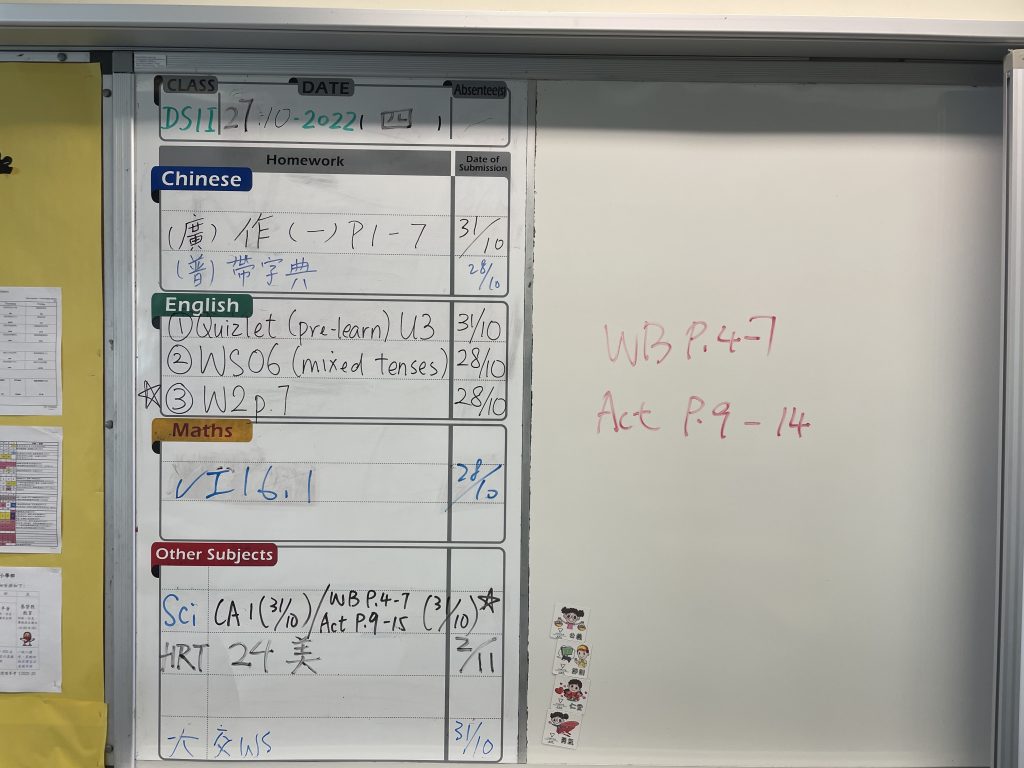 CLASS DATE Absentee(s)
27.10-2022( 四 )
Homework Date of Submission
Chinese
(廣) 作 (一) P1-7 31/10
(普) 帶字典 28/10
English
① Quizlet (pre-learn) U3 31/10
② WS06 (mixed tenses) 28/10
☆ ③ W2 p.7 28/10
Maths
16.1 28/10
Other Subjects
Sci CA1 (31/10) / WB P.4-7 (31/10) ☆
Act P.9-15
HRT 24 美 2/11
交WS 31/10
WB P.4-7
Act P.9-14
公義
仁愛
勇氣